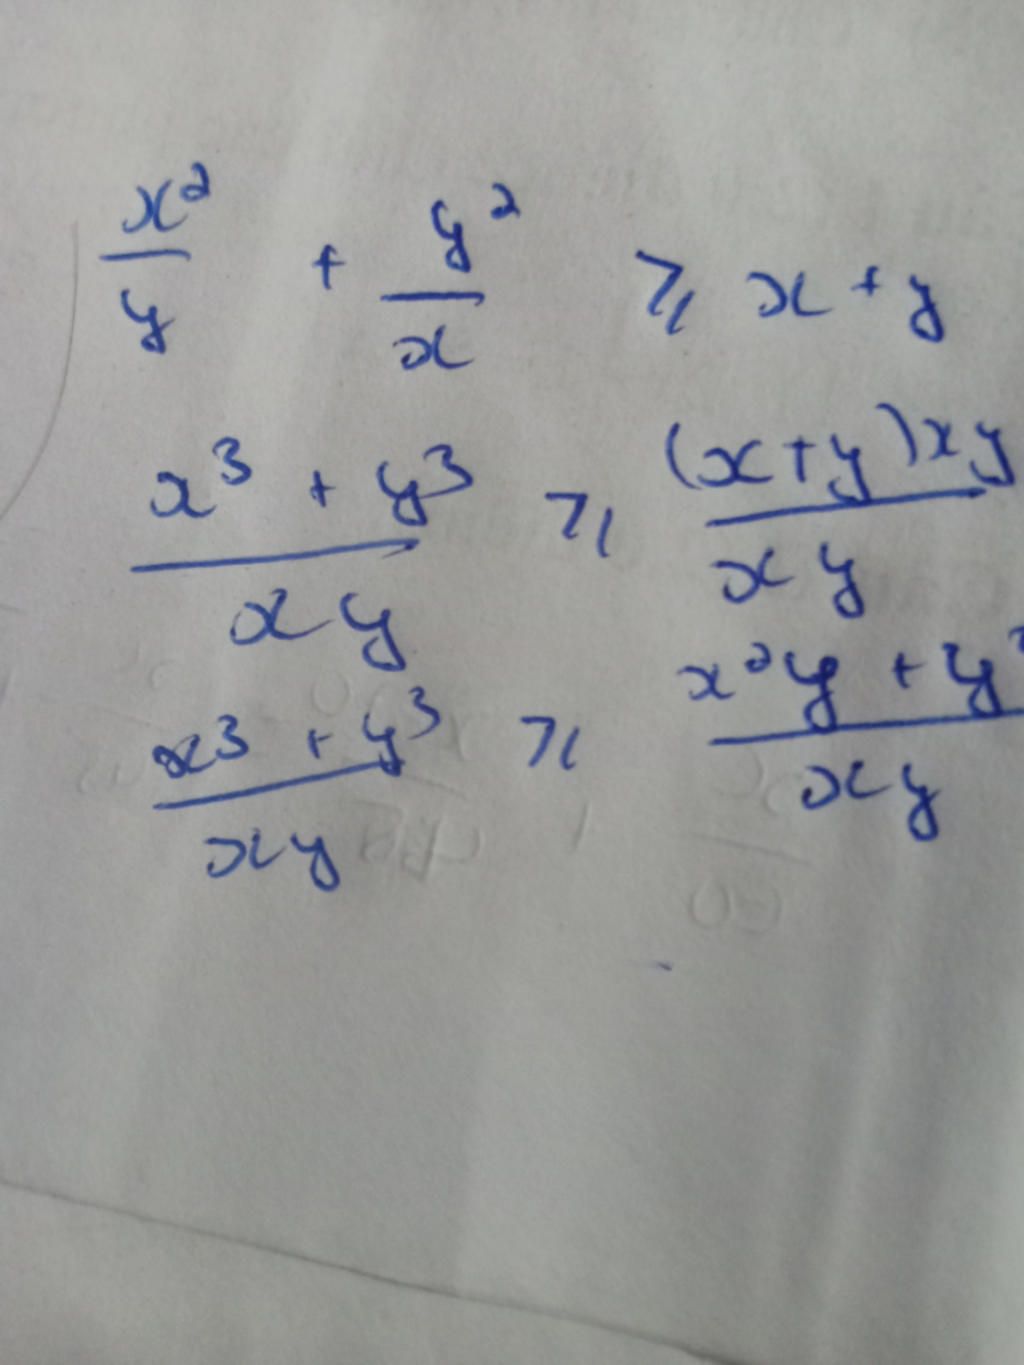 x²/y + y²/x ⩾ x + y
(x³ + y³)/(xy) ⩾ ((x+y)xy)/(xy)
(x³ + y³)/(xy) ⩾ (x²y + y)/(xy)